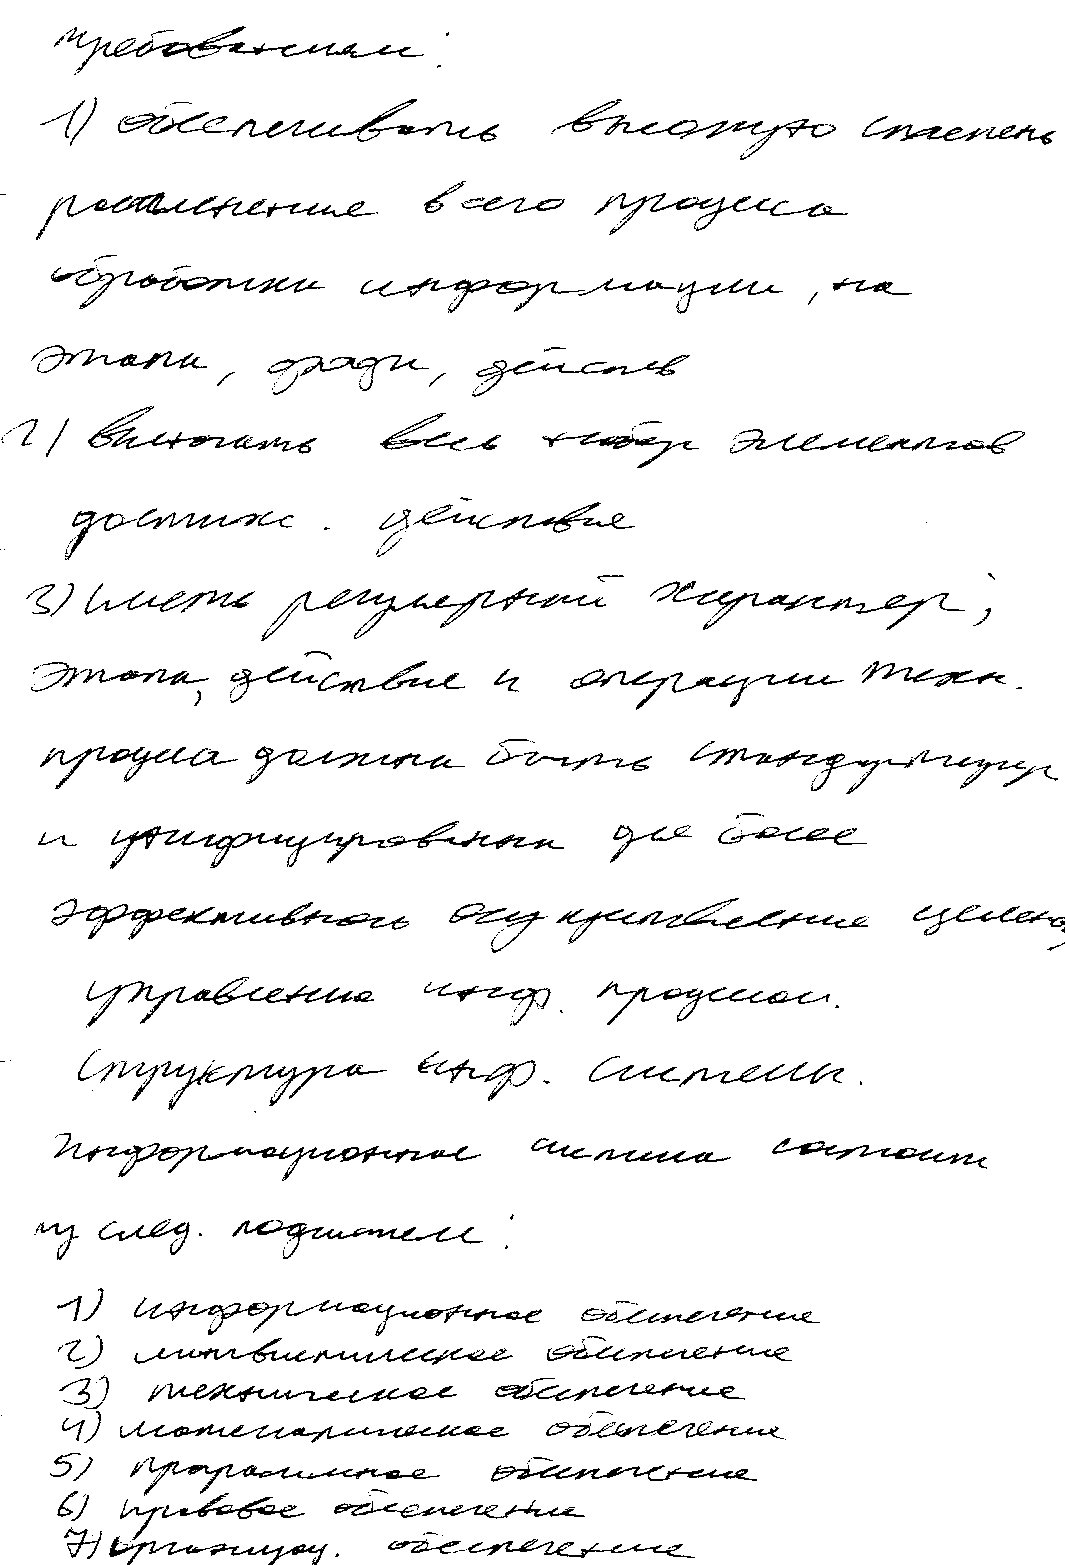 требованиям:
1) обеспечивать высокую степень
расчленение всего процесса
обработки информации, на
этапы, фазы, действ
2) включать весь набор элементов
достиж. действие
3) иметь регулярный характер,
этапы, действие и операции техн.
процесса должны быть стандартизир
и унифицированны для более
эффективной осуществление целено
управление инф. процессом.
Структура инф. системы.
Информационное система состоит
из след. подсистем:
1) информационное обеспечение
2) лингвистическое обеспечение
3) техническое обеспечение
4) математическое обеспечение
5) программное обеспечение
6) правовое обеспечение
7) организац. обеспечение